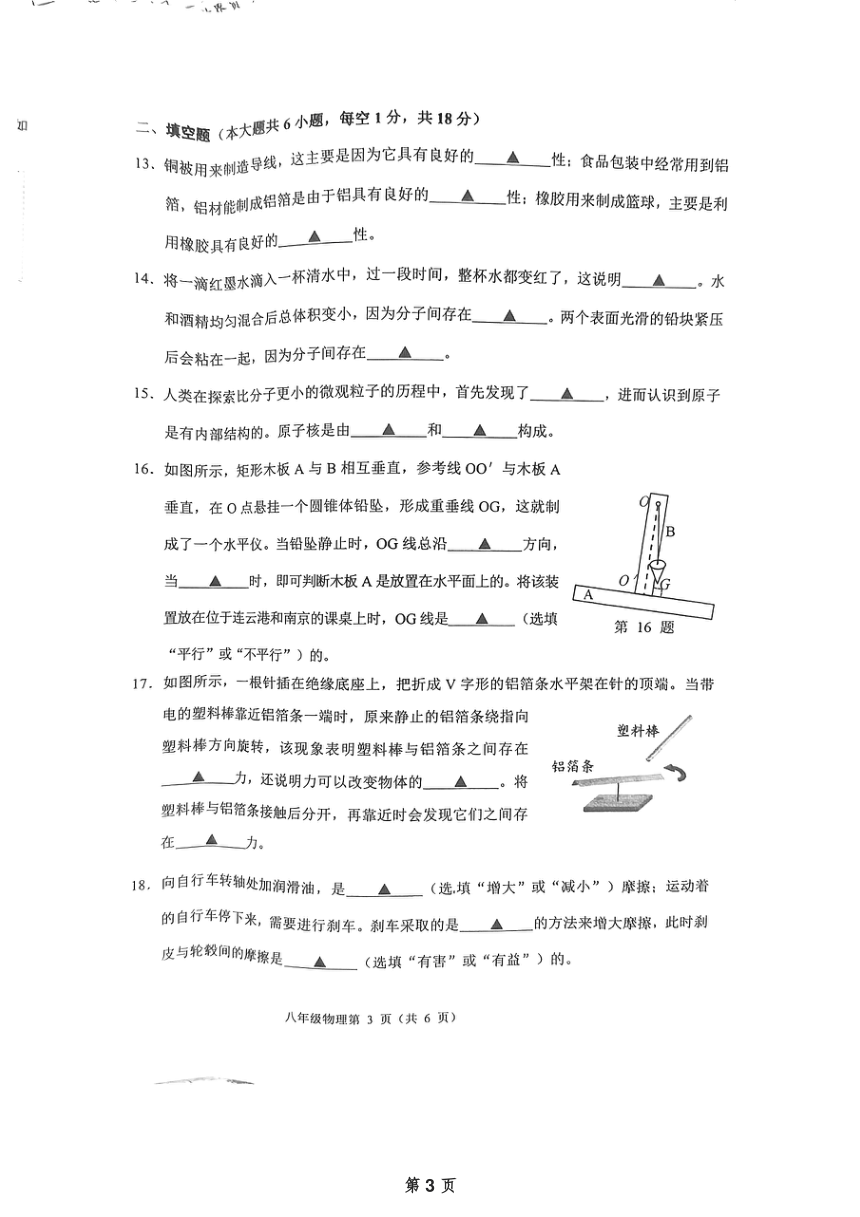 如
二、填空题（本大题共6小题，每空1分，共18分）
13．铜被用来制造导线，这主要是因为它具有良好的▲性；食品包装中经常用到铝
箔，铝材能制成铝箔是由于铝具有良好的▲性；橡胶用来制成篮球，主要是利
用橡胶具有良好的▲性。
14．将一滴红墨水滴入一杯清水中，过一段时间，整杯水都变红了，这说明▲。水
和酒精均匀混合后总体积变小，因为分子间存在▲。两个表面光滑的铅块紧压
后会粘在一起，因为分子间存在▲。
15．人类在探索比分子更小的微观粒子的历程中，首先发现了▲，进而认识到原子
是有内部结构的。原子核是由▲和▲构成。
16．如图所示，矩形木板A与B相互垂直，参考线OO′与木板A
垂直，在O点悬挂一个圆锥体铅坠，形成重垂线OG，这就制
成了一个水平仪。当铅坠静止时，OG线总沿▲方向，
当▲时，即可判断木板A是放置在水平面上的。将该装
置放在位于连云港和南京的课桌上时，OG线是▲（选填
“平行”或“不平行”）的。
O
B
O′
G
A
第 16 题
17．如图所示，一根针插在绝缘底座上，把折成V字形的铝箔条水平架在针的顶端。当带
电的塑料棒靠近铝箔条一端时，原来静止的铝箔条绕指向
塑料棒方向旋转，该现象表明塑料棒与铝箔条之间存在
▲力，还说明力可以改变物体的▲。将
塑料棒与铝箔条接触后分开，再靠近时会发现它们之间存
在▲力。
塑料棒
铝箔条
18．向自行车转轴处加润滑油，是▲（选填“增大”或“减小”）摩擦；运动着
的自行车停下来，需要进行刹车。刹车采取的是▲的方法来增大摩擦，此时刹
皮与轮毂间的摩擦是▲（选填“有害”或“有益”）的。
八年级物理第 3 页（共 6 页）
第 3 页